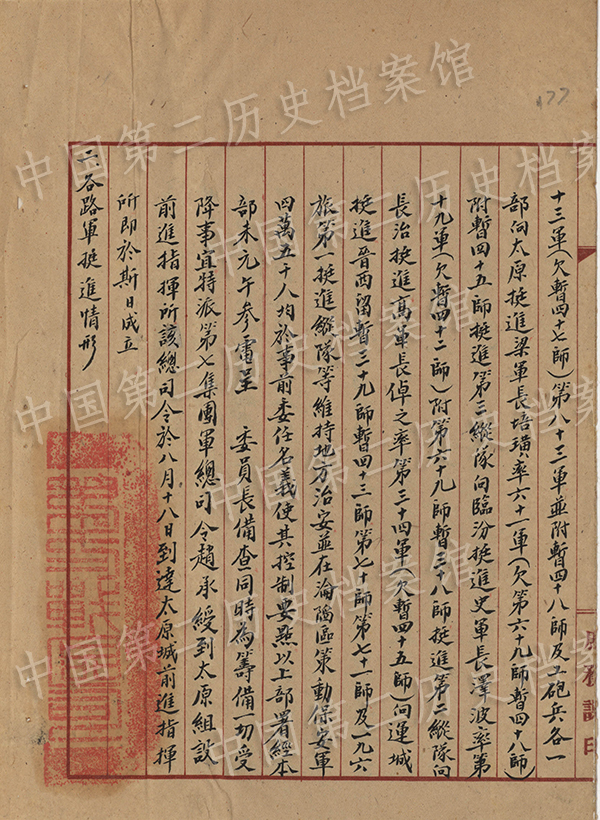 177
十三軍(欠暫四十七師)第八十三軍並附暫四十八師及工砲兵各一
部向太原挺進梁軍長培璜率六十一軍(欠第六十九師暫四十八師)
附暫四十五師挺進第三縱隊向臨汾挺進史軍長澤波率第
十九軍(欠暫四十二師)附第六十九師暫三十八師挺進第二縱隊向
長治挺進高軍長倬之率第三十四軍(欠暫四十五師)向運城
挺進晉西留暫三十九師暫四十三師第七十師第七十一師及一九六
旅第一挺進縱隊等維持地方治安並在淪陷區策動保安軍
四萬五千人均於事前委任名義使其控制要點以上部署經本
部未元午參電呈 委員長備查同時為籌備一切受
降事宜特派第七集團軍總司令趙承綬到太原組設
前進指揮所該總司令於八月十八日到達太原城前進指揮
所即於斯日成立
二各路軍挺進情形
中国第二历史档案馆
中国第二历史档案馆
中国第二历史档案馆